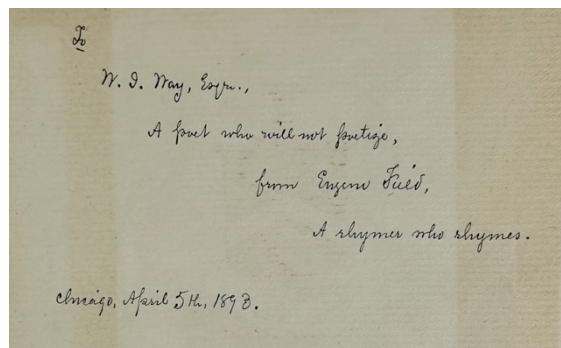 To
W. I. Way, Esqr.,
A poet who will not poetize,
from Eugene Field,
A rhymer who rhymes.
Chicago, April 5th, 1893.